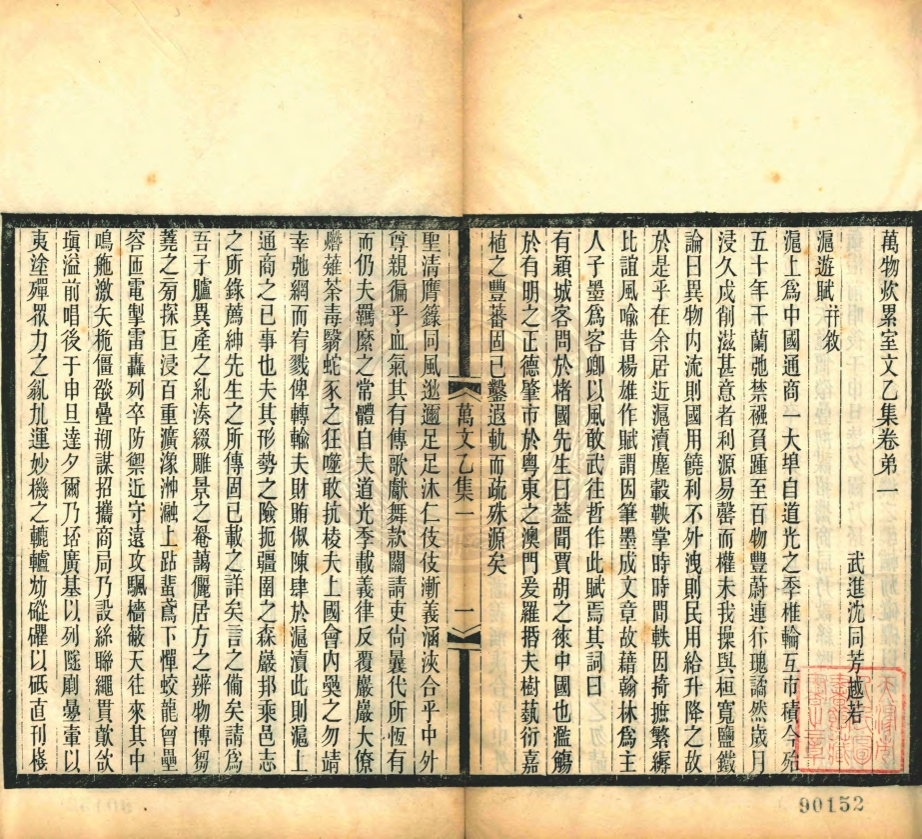 萬物炊累室文乙集卷弟一
武進沈同芳越若
滬遊賦 幷敘
滬上爲中國通商一大埠自道光之季椎輪互市積今殆
五十年干蘭弛禁襁負踵至百物豐蔚連仦瑰譎然歲月
浸久戍創滋甚意者利源易罄而權未我操與桓寬鹽鐵
論曰異物内流則國用饒利不外洩則民用給升降之故
於是乎在余居近滬瀆塵轂鞅掌時時間軼因掎摭繁縟
比誼風喩昔楊雄作賦謂因筆墨成文章故藉翰林爲主
人子墨爲客卿以風敢武往哲作此賦焉其詞曰
有穎城客問於楮國先生曰葢聞賈胡之徠中國也濫觴
於有明之正德肇市於粤東之澳門爰羅揩夫樹蓺衍嘉
植之豐蕃固已鑿遐軌而疏殊源矣
萬文乙集一
一
聖清膺籙同風遐邇足足沐仁伎伎漸義涵浹合乎中外
尊親徧乎血氣其有傳歌獻舞款關請吏尙曩代所恆有
而仍夫羈縻之常體自夫道光季載義律反覆巖巖大僚
㜸薙荼毒翳蛇豕之狂噬敢抗棱夫上國會内㚄之勿靖
幸弛綱而宥戮俾轉輸夫財賄俶陳肆於滬瀆此則滬上
通商之已事也夫其形勢之險扼疆圉之森嚴邦乘邑志
之所錄薦紳先生之所傳固已載之詳矣言之備矣請爲
吾子臚異產之糺湊綴雕景之菴藹儷居方之辨物博芻
蕘之旁探巨浸百重瀇瀁浺瀜上跕蜚鳶下憚蛟龍曾壘
容匝電掣雷轟列卒防禦近守遠攻颿檣蔽天往來其中
鳴鵃激矢梔僵燄疊朔謀招攜商局乃設絲聯繩貫歕欲
塡溢前唱後于申旦達夕爾乃坯廣基以列隧劀壘輂以
夷塗殫衆力之勠㔕運妙機之轆轤劫硿礭以砥直刊棧
90152